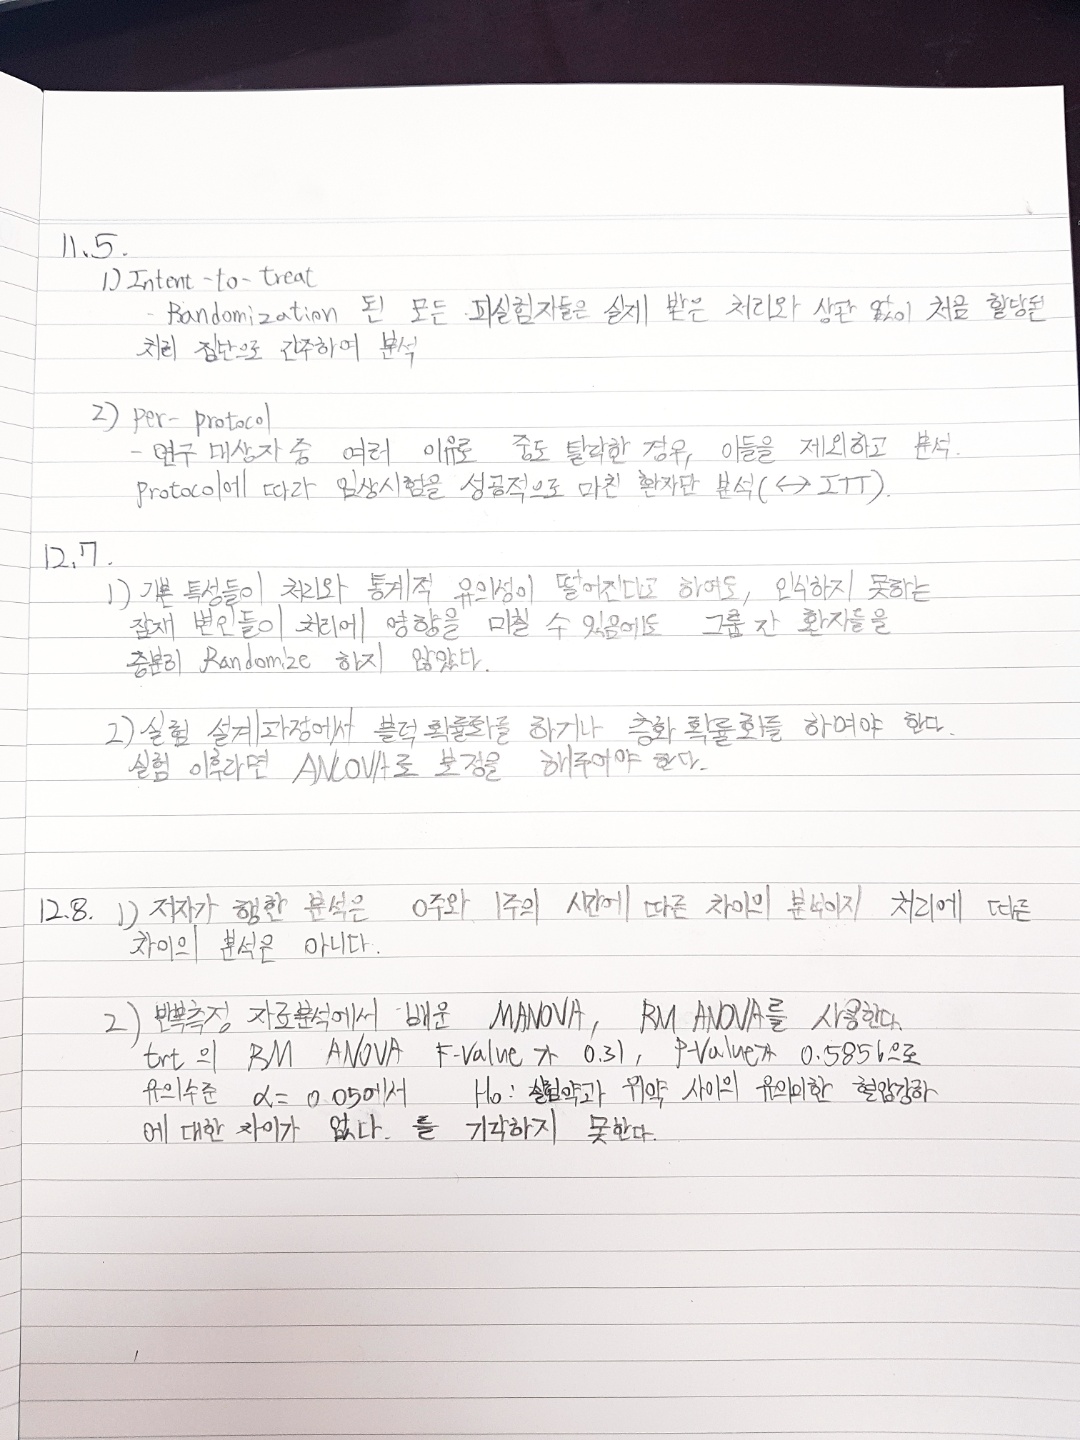 11.5.
1) Intent-to-treat
- Randomization 된 모든 피실험자들은 실제 받은 처리와 상관 없이 처음 할당된
처리 집단으로 간주하여 분석
2) per-protocol
- 연구 대상자 중 여러 이유로 중도 탈락한 경우, 이들을 제외하고 분석.
protocol에 따라 임상시험을 성공적으로 마친 환자만 분석(↔ITT).
12.7.
1) 기본 특성들이 처리와 통계적 유의성이 떨어진다고 하여도, 인식하지 못하는
잠재 변인들이 처리에 영향을 미칠 수 있음에도 그룹 간 환자들을
충분히 Randomize 하지 않았다.
2) 실험 설계과정에서 블럭확률화를 하거나 층화 확률화를 하여야 한다.
실험 이후라면 ANCOVA로 보정을 해주어야 한다.
12.8. 1) 저자가 행한 분석은 0주와 1주의 시간에 따른 차이의 분석이지 처리에 따른
차이의 분석은 아니다.
2) 반복측정 자료분석에서 배운 MANOVA, RM ANOVA를 사용한다.
trt 의 RM ANOVA F-value 가 0.31, P-value가 0.5856으로
유의수준 α=0.05에서 H₀: 실험약과 위약 사이의 유의미한 혈압강하
에 대한 차이가 없다. 를 기각하지 못한다.